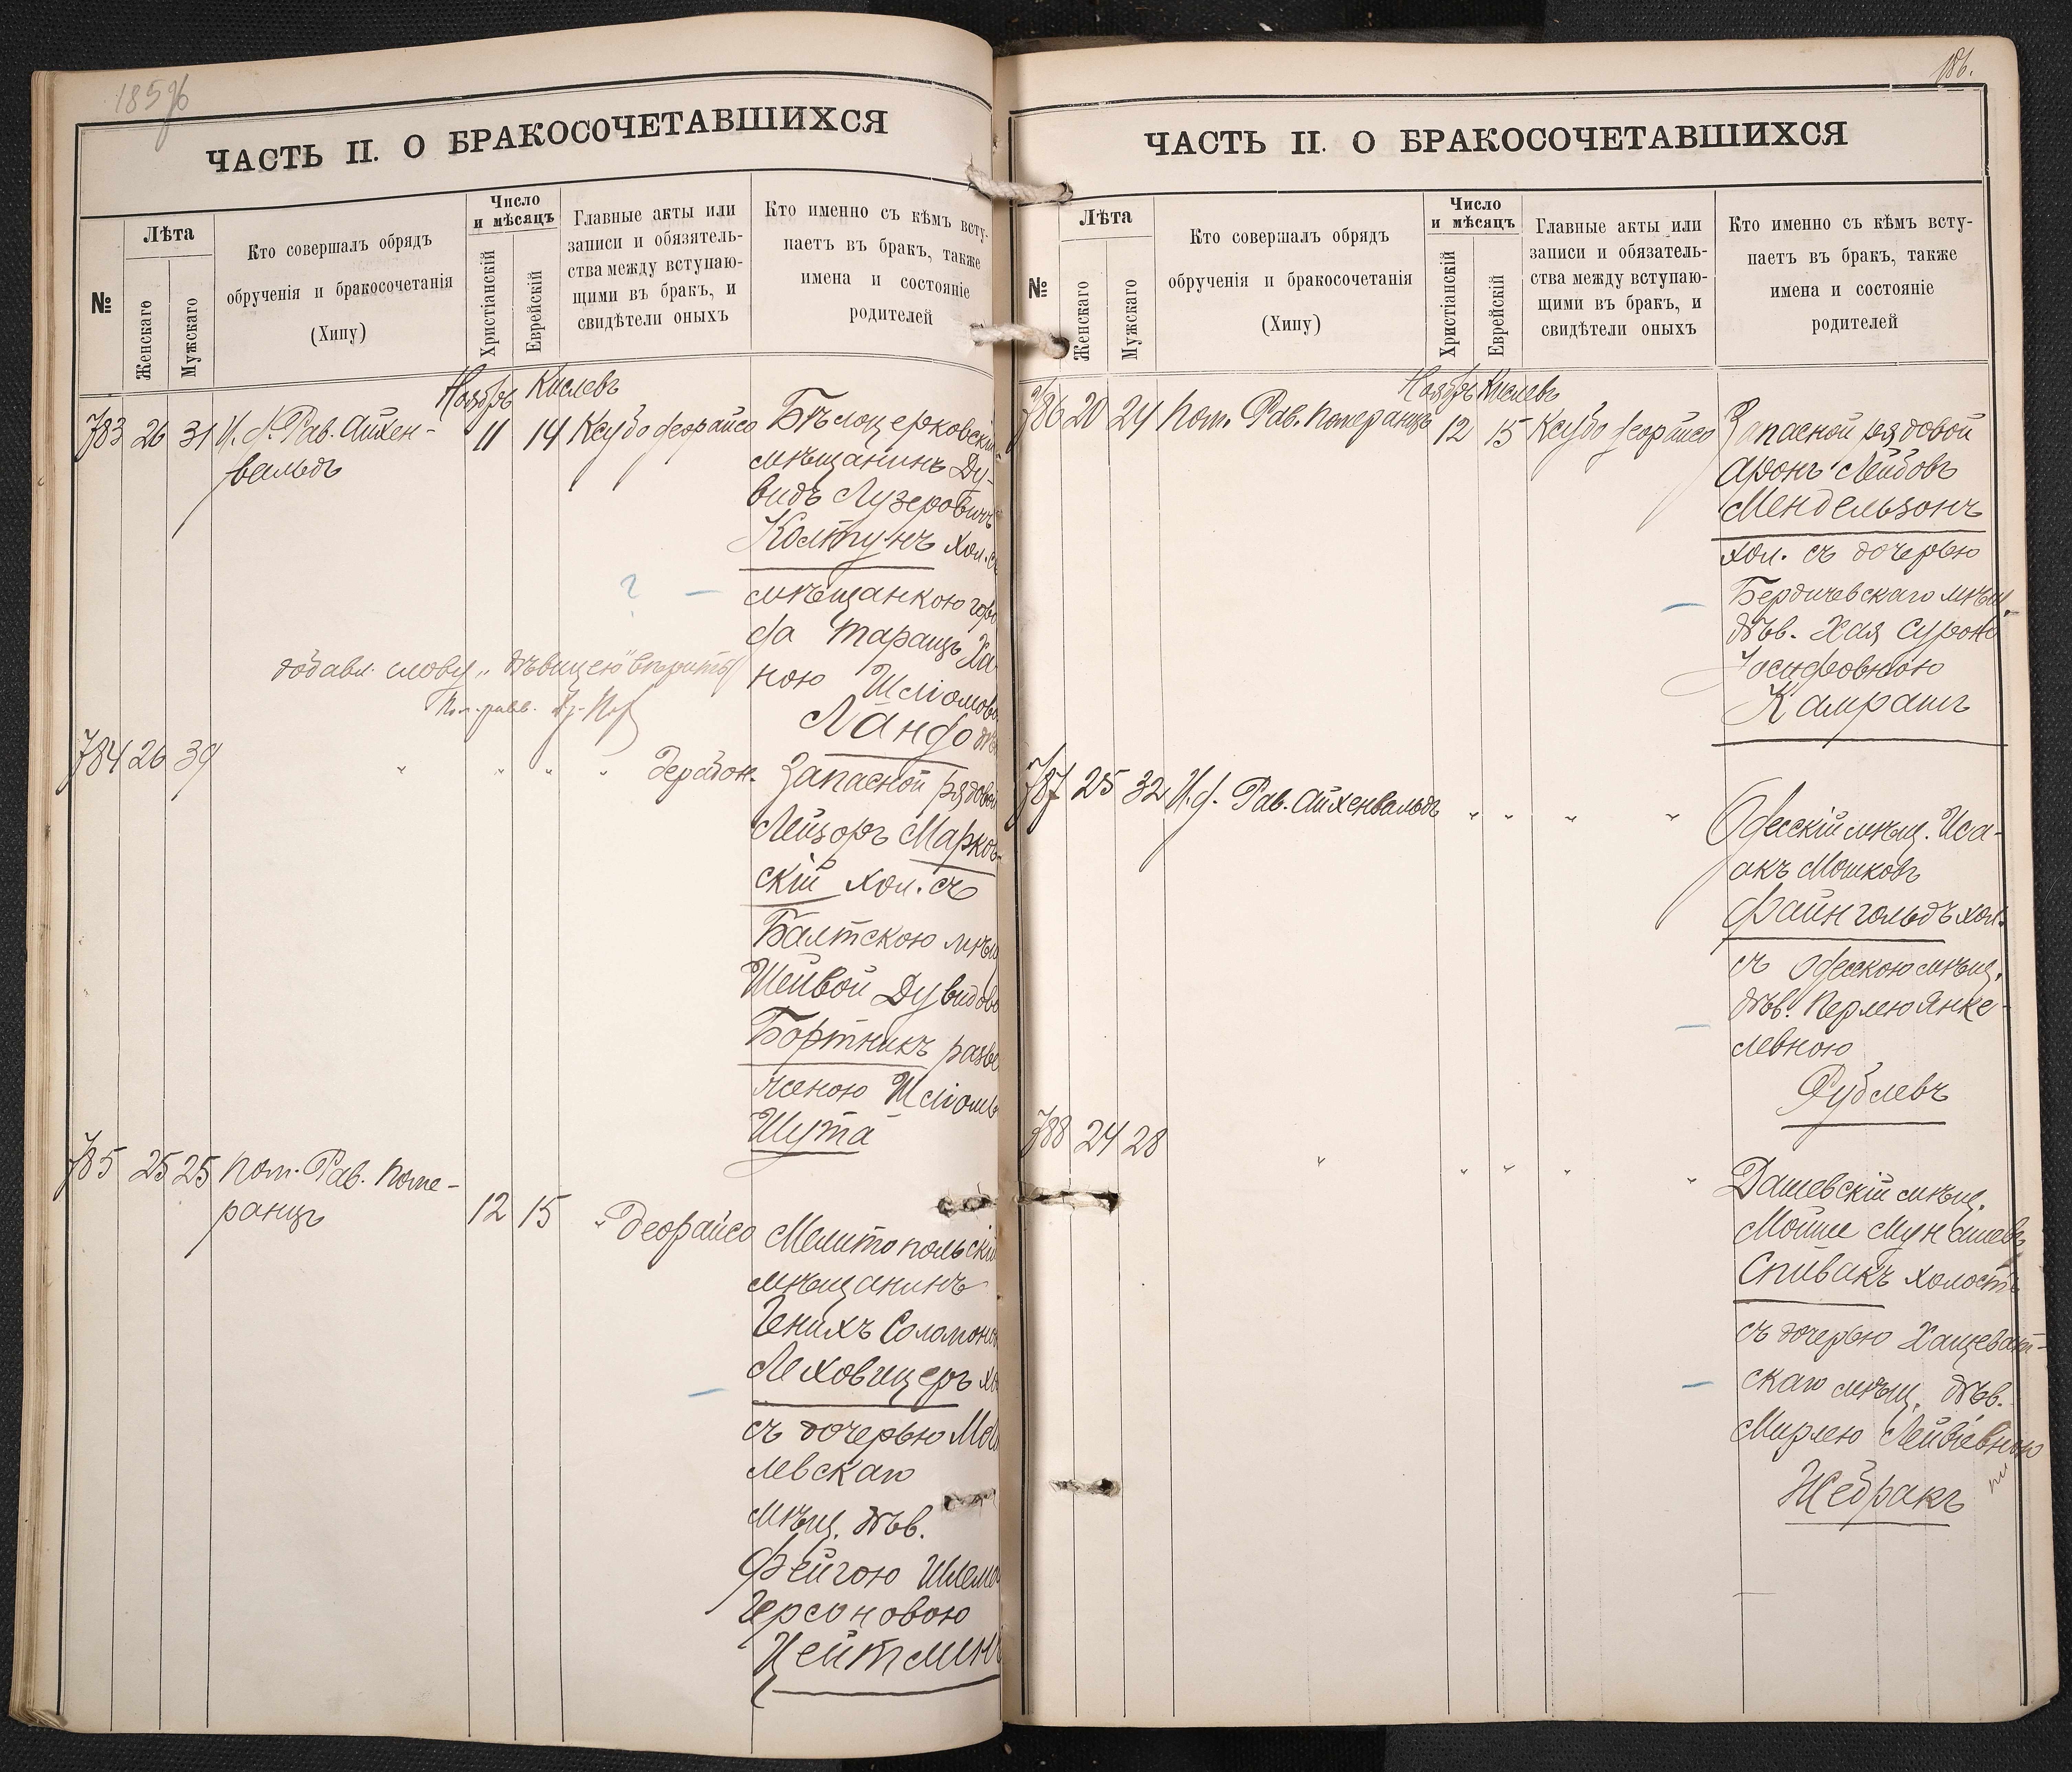 185 об
ЧАСТЬ II. О БРАКОСОЧЕТАВШИХСЯ
№
Лѣта
Женскаго
Мужскаго
Кто совершалъ обрядъ
обрученія и бракосочетанія
(Хипу)
Число
и мѣсяцъ
Христіанскій
Еврейскій
Главные акты или
записи и обязятель-
ства между вступаю-
щими въ бракъ, и
свидѣтели оныхъ
Кто именно съ кѣмъ всту-
паетъ въ бракъ, также
имена и состояніе
родителей
Ноябрь Кислевъ
783 26 31 И. д. Рав. Айхен- 11 14 Ксубо деорайсо Бѣлоцерковскій
вальдъ
мѣщанинъ Ду-
видъ Лузеровичъ
Колтунъ хол. съ
мѣщанкою горо
да Таращъ Ха-
ною Шлiомов
Ландо дѣв
добавл. слову "дѣвицею" вѣрить
Пом. равв.
784 26 39 " " " " дерабон. Запасной рядовой
Лейзоръ Марков-
скій хол. съ
Балтскою мѣщ
Шейвой Дувидов
Бортникъ разве
женою Шлiомы
Шута
785 25 25 Пом. Рав. Поме-
ранцъ 12 15 " деорайсо Мелитопольскій
мѣщанинъ
Генихъ Соломонов
Леховицеръ хо
съ дочерью Мог
левскаго
мѣщ. дѣв.
Фейгою Шлемо
Герсоновою
Цейтлинъ
186.
ЧАСТЬ II. О БРАКОСОЧЕТАВШИХСЯ
№
Лѣта
Женскаго
Мужскаго
Кто совершалъ обрядъ
обрученія и бракосочетанія
(Хипу)
Число
и мѣсяцъ
Христіанскій
Еврейскій
Главные акты или
записи и обязатель-
ства между вступаю-
щими въ бракъ, и
свидѣтели оныхъ
Кто именно съ кѣмъ всту-
паетъ въ бракъ, также
имена и состояніе
родителей
Ноябрь Кислевъ
786 20 24 Пом. Рав. Померанцъ 12 15 Ксубо деорайсо Запасной рядовой
Аронъ Лейбовъ
Мендельзонъ
хол. съ дочерью
Бердичевскаго мѣщ.
дѣв. Хая Сурою
Iосифовною
Камрашъ
787 25 32 И. д. Рав. Айхенвальдъ " " " " Одесскій мѣщ. Иса-
акъ Мошковъ
Файнгольдъ хол.
съ Одесскою мѣщ.
дѣв. Перлею Янке-
левною
Рублевъ
788 24 28 " " " " " Дашевскій мѣщ.
Мойше Мунашевъ
Спивакъ холостъ
съ дочерью Хащеват-
скаго мѣщ. дѣв.
Мирлею Лейбiевною
Жебракъ